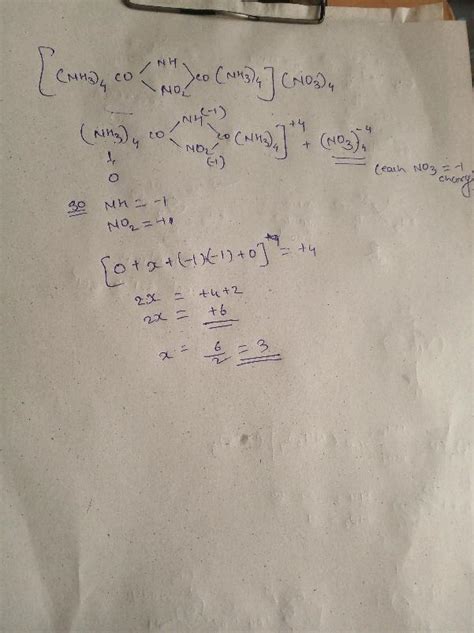 [(NH3)4 CO < NH NO2 > CO (NH3)4] (NO3)4
(NH3)4 CO < NH(-1) NO2(-1) > CO (NH3)4]+4 + (NO3)4-4
↓
0
(each NO3 = -1 charge
SO NH = -1
NO2 = -1
[0 + x + (-1)(-1) + 0] = +4
2x = +4+2
2x = +6
x = 6/2 = 3